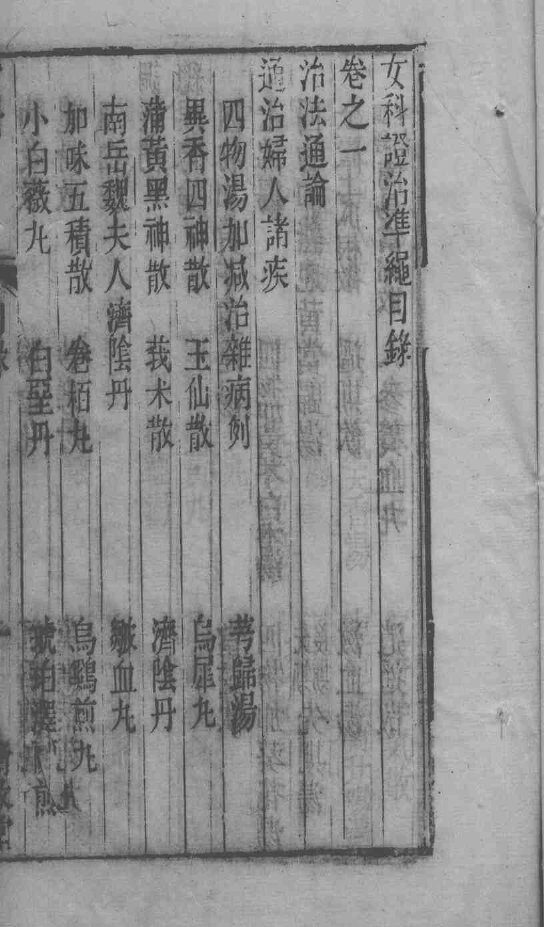 女科證治準繩目錄
卷之一
治法通論
通治婦人諸疾
四物湯加减治雜病例 芎歸湯
異香四神散 玉仙散 烏犀丸
蒲黃黑神散 莪朮散 濟陰丹
南岳魏夫人濟陰丹 皺血丸
加味五積散 卷栢丸 烏鷄煎丸
小白薇丸 白堊丹 琥珀澤蘭煎